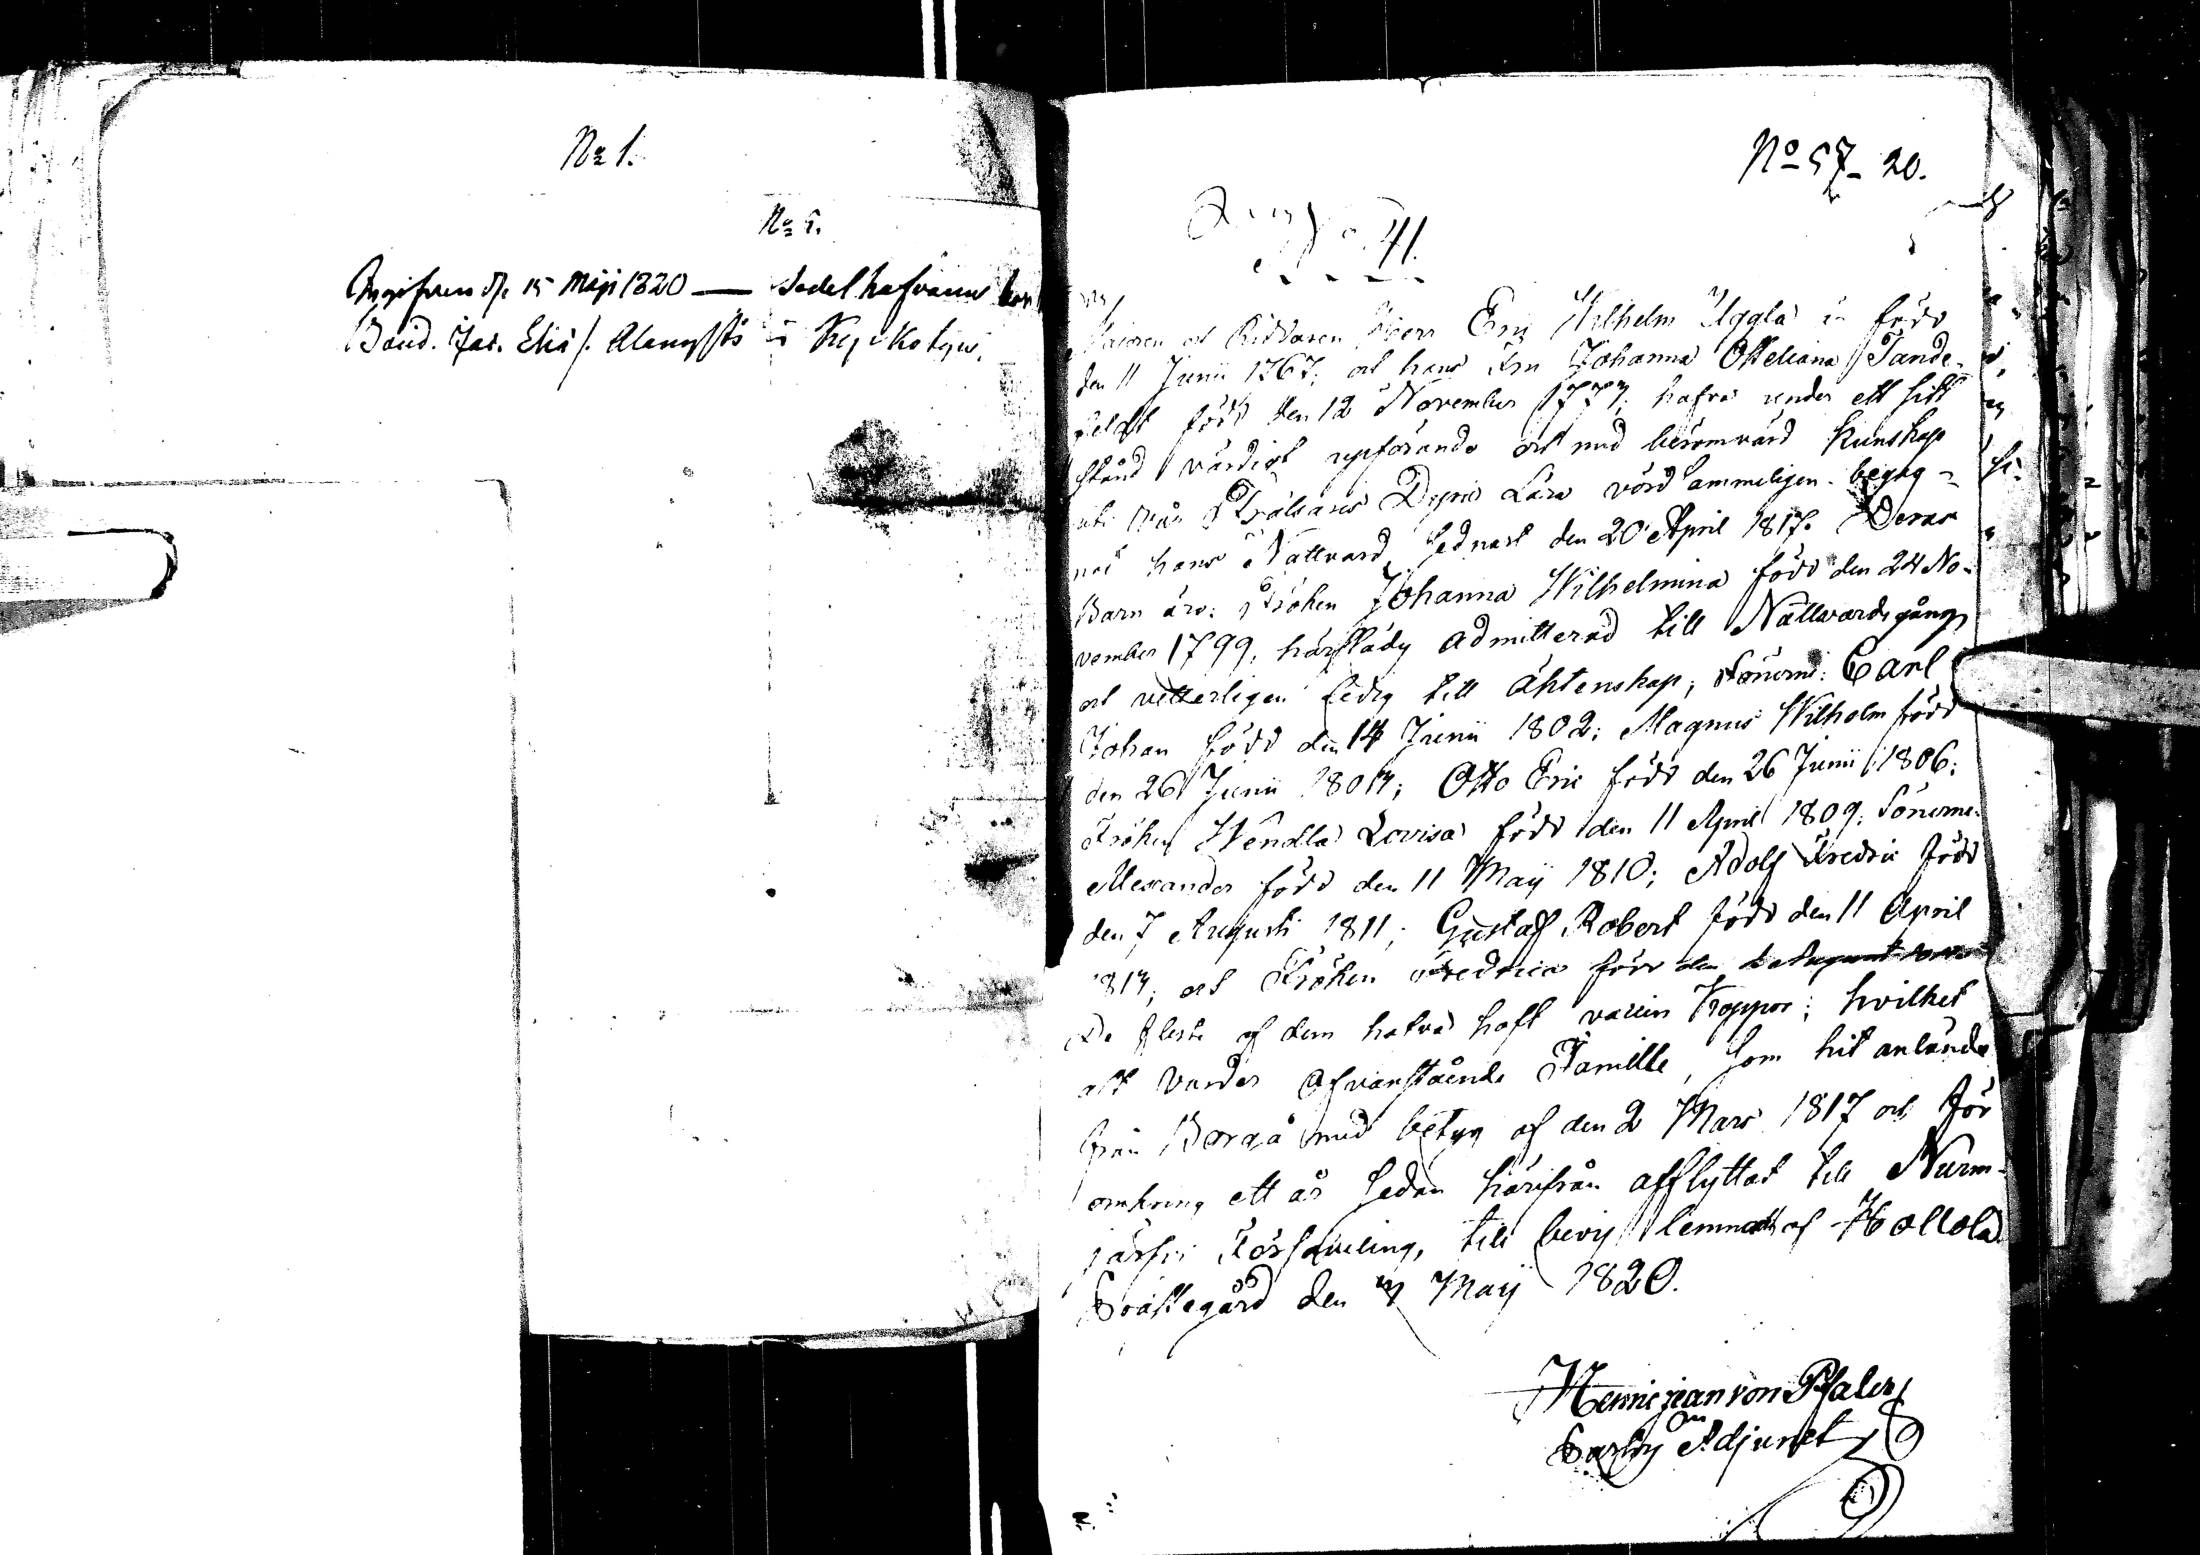 No 1.
No 5.
den 15 Maji 1820 — Sedelhafvarens
No 57 - 20.
Majoren och Riddaren Herr Eric Wilhelm Uggla är född
den 11 Junii 1767; och hans Fru Johanna Otteliana Tande-
feldt född den 12 November 1777; hafva under ett sitt
stånd värdigt upförande och med berömvärd kunskap
uti vår Frälsares Dyra Lära vördsammeligen begag-
nat hans Nattvard sednast den 20 April 1817. Deras
Barn äro: Fröken Johanna Wilhelmina född den 24 No-
vember 1799, härstädes admitterad till Nattvardsgång
och vetterligen ledig till äktenskap; Sönerne: Carl
Johan född den 14 Junii 1802; Magnus Wilhelm född
den 26 Junii 1804; Otto Eric född den 26 Junii 1806;
Fröken Wendla Lovisa född den 11 April 1809; Sönerne
Alexander född den 11 Maij 1810; Adolf Fredric född
den 7 Augusti 1811; Gustaf Robert född den 11 April
1814; och Fröken Fredrica född den
De fleste af dem hafva haft vaccin koppor; hvilket
allt varder ofvanstående Famille, som hit anlände
från Borgå med betyg af den 2 Mars 1817 och för
omkring ett år sedan härifrån afflyttat till Nurm-
järfvi Församling, till bevis lemnadt af Hollola
Prästegård den Maij 1820.
Henric Jean von Pfaler
Adjunct